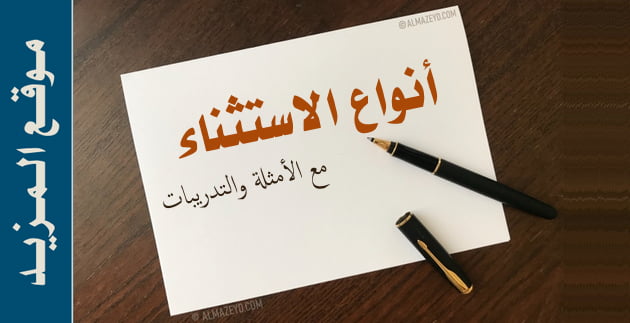 © ALMAZEYD.COM
أنواع الاستثناء
مع الأمثلة والتدريبات
© ALMAZEYD.COM
موقع المزيد